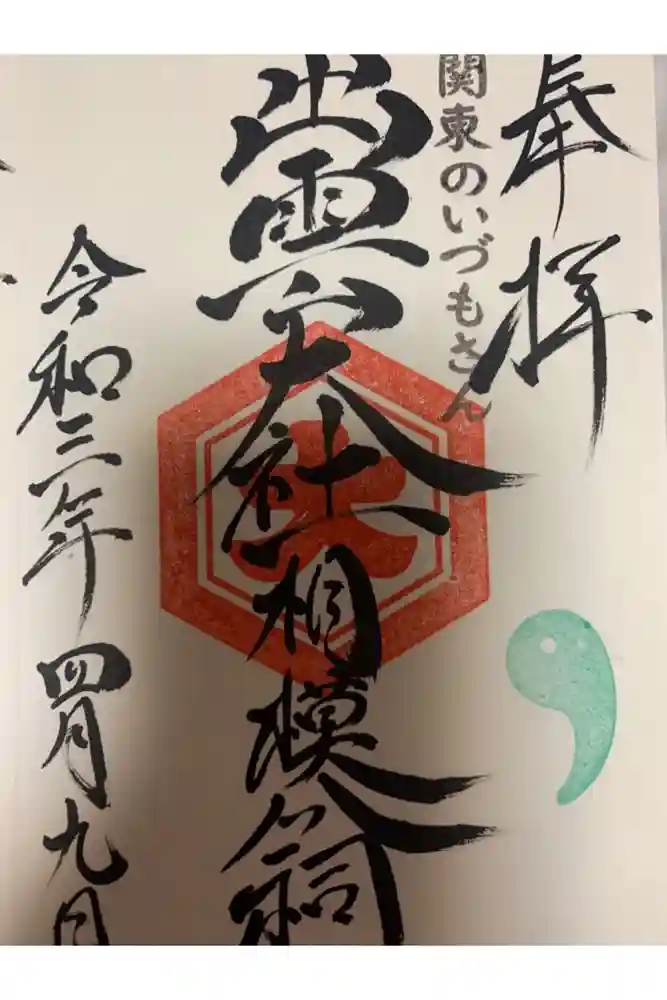 奉拝
関東のいづもさん
出雲大社相模分祠
大
令和三年四月九日